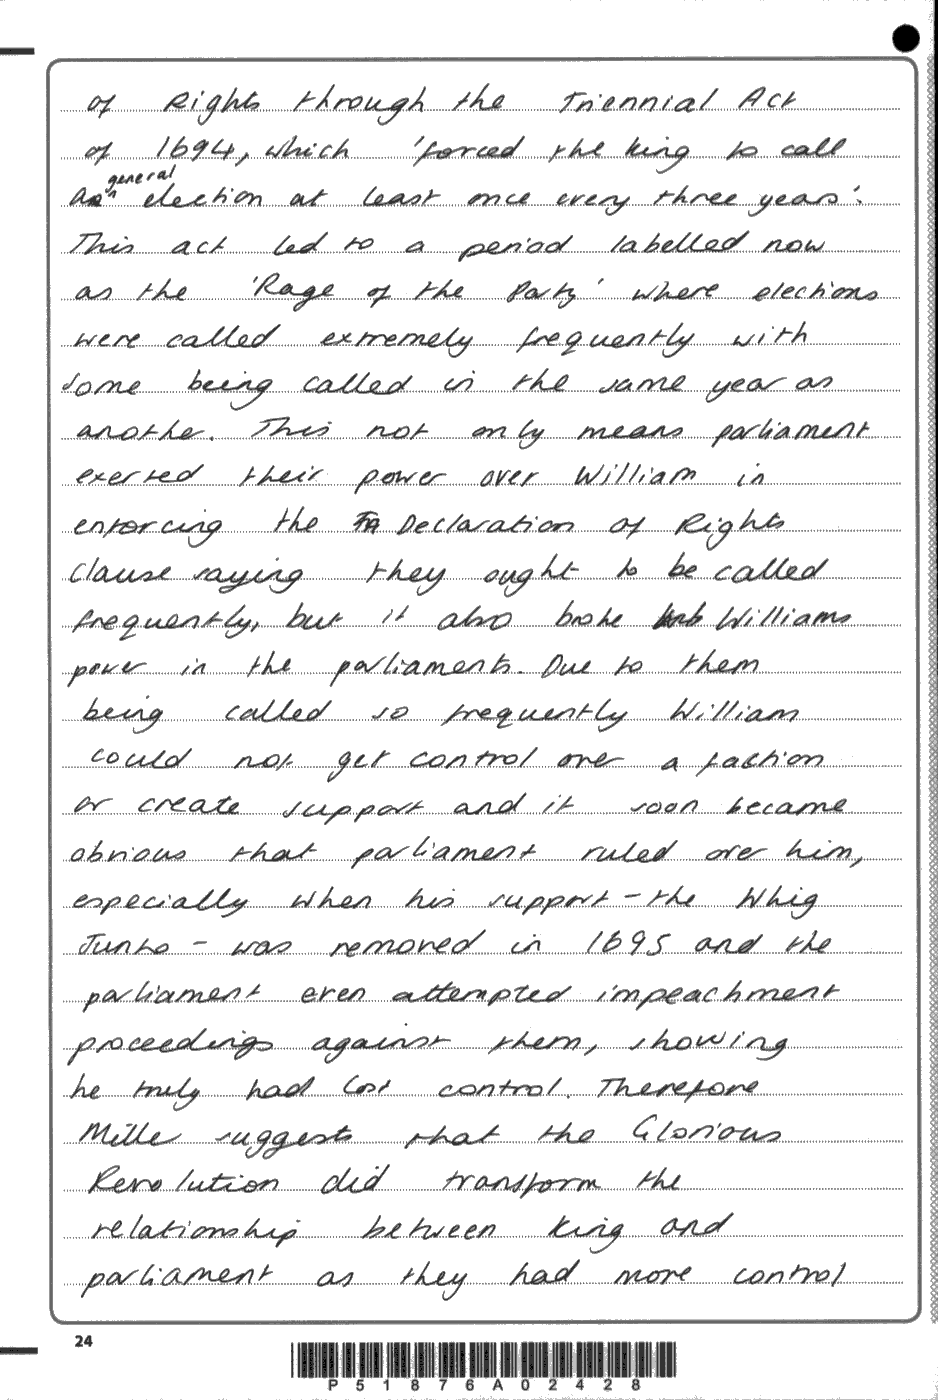 of Rights through the Triennial Act
of 1694, which 'forced the king to call
a general election at least once every three years'.
This act led to a period labelled now
as the 'Rage of the Party' where elections
were called extremely frequently with
some being called in the same year as
another. This not only means parliament
exerted their power over William in
enforcing the Declaration of Rights
clause saying they ought to be called
frequently, but it also broke Williams
power in the parliaments. Due to them
being called so frequently William
could not get control over a faction
or create support and it soon became
obvious that parliament ruled over him,
especially when his support - the Whig
Junto - was removed in 1695 and the
parliament even attempted impeachment
proceedings against them, showing
he truly had lost control. Therefore
Miller suggests that the Glorious
Revolution did transform the
relationship between king and
parliament as they had more control
24
P51876A02428